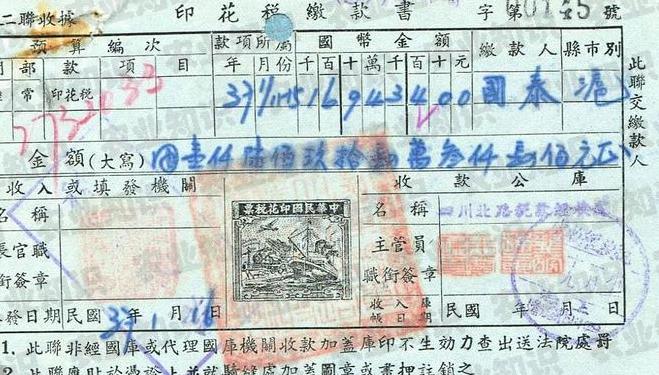 二聯收據 印花稅繳款書 字第 號
預算編次 款項所屬 國幣金額 繳款人 縣市別
部 款 項 目 年 月份 千 百 十 萬 千 百 十 元
常 印花稅 37 1 1-15 1 6 9 4 3 4 0 0 國泰 滬
此聯交繳款人
金額(大寫) 壹仟陸佰玖拾 萬叁仟 佰元正
收入或填發機關 收款公庫
名稱 名稱 四川北路
中華民國印花稅票
長官職 主管員
銜簽章 職銜簽章
發日期 民國 37年 1月16日 收入庫帳日期 民國 年 月 日
1. 此聯非經國庫或代理國庫機關收款加蓋庫印不生効力查出送法院處罰
2. 此聯應貼於憑證上並就騎縫處加蓋圖章或畫押註銷之